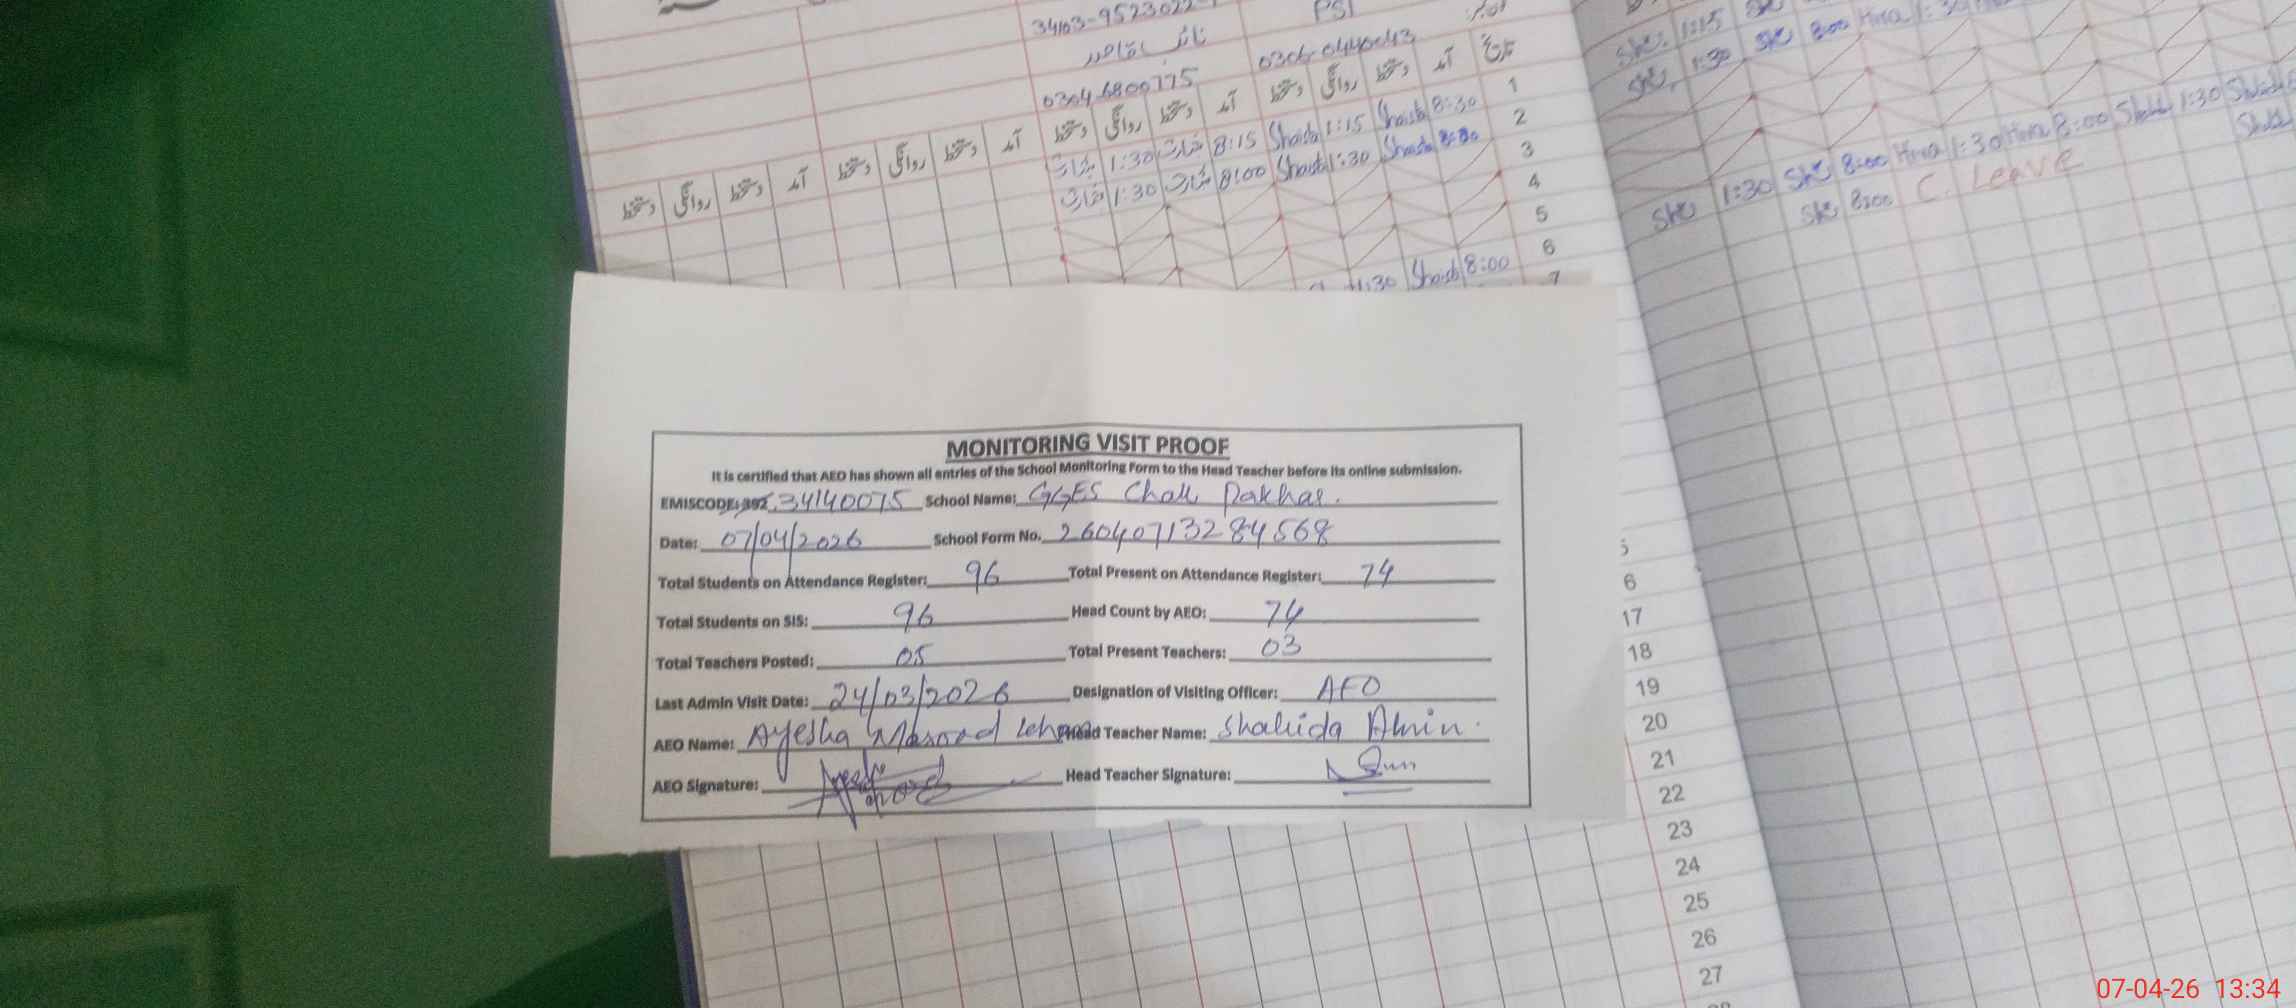 34103-9523022-1
PST
0304 6800775
0306-0440043
تاریخ آمد دستخط روانگی دستخط آمد دستخط روانگی دستخط آمد دستخط روانگی دستخط آمد دستخط روانگی دستخط
1 8:30 Shaista 1:15 Shaista 8:15 1:30
2 8:00 Shaista 1:30 Shaista 8:00 1:30
3
4
5
6 8:00 Shaista 1:30
7
1:15
1:30 8:00 Hina 1:30
1:30 8:00 Hina 1:30 Hina 8:00 1:30
8:00 C. Leave
MONITORING VISIT PROOF
It is certified that AEO has shown all entries of the School Monitoring Form to the Head Teacher before its online submission.
EMISCODE: 392 34140075 School Name: GGES Chak Dakhar.
Date: 07/04/2026 School Form No. 26040713284568
Total Students on Attendance Register: 96 Total Present on Attendance Register: 74
Total Students on SIS: 96 Head Count by AEO: 74
Total Teachers Posted: 05 Total Present Teachers: 03
Last Admin Visit Date: 24/03/2026 Designation of Visiting Officer: AEO
AEO Name: Ayesha Masood Head Teacher Name: Shahida Amin.
AEO Signature: Head Teacher Signature:
5
6
17
18
19
20
21
22
23
24
25
26
27
28
07-04-26 13:34